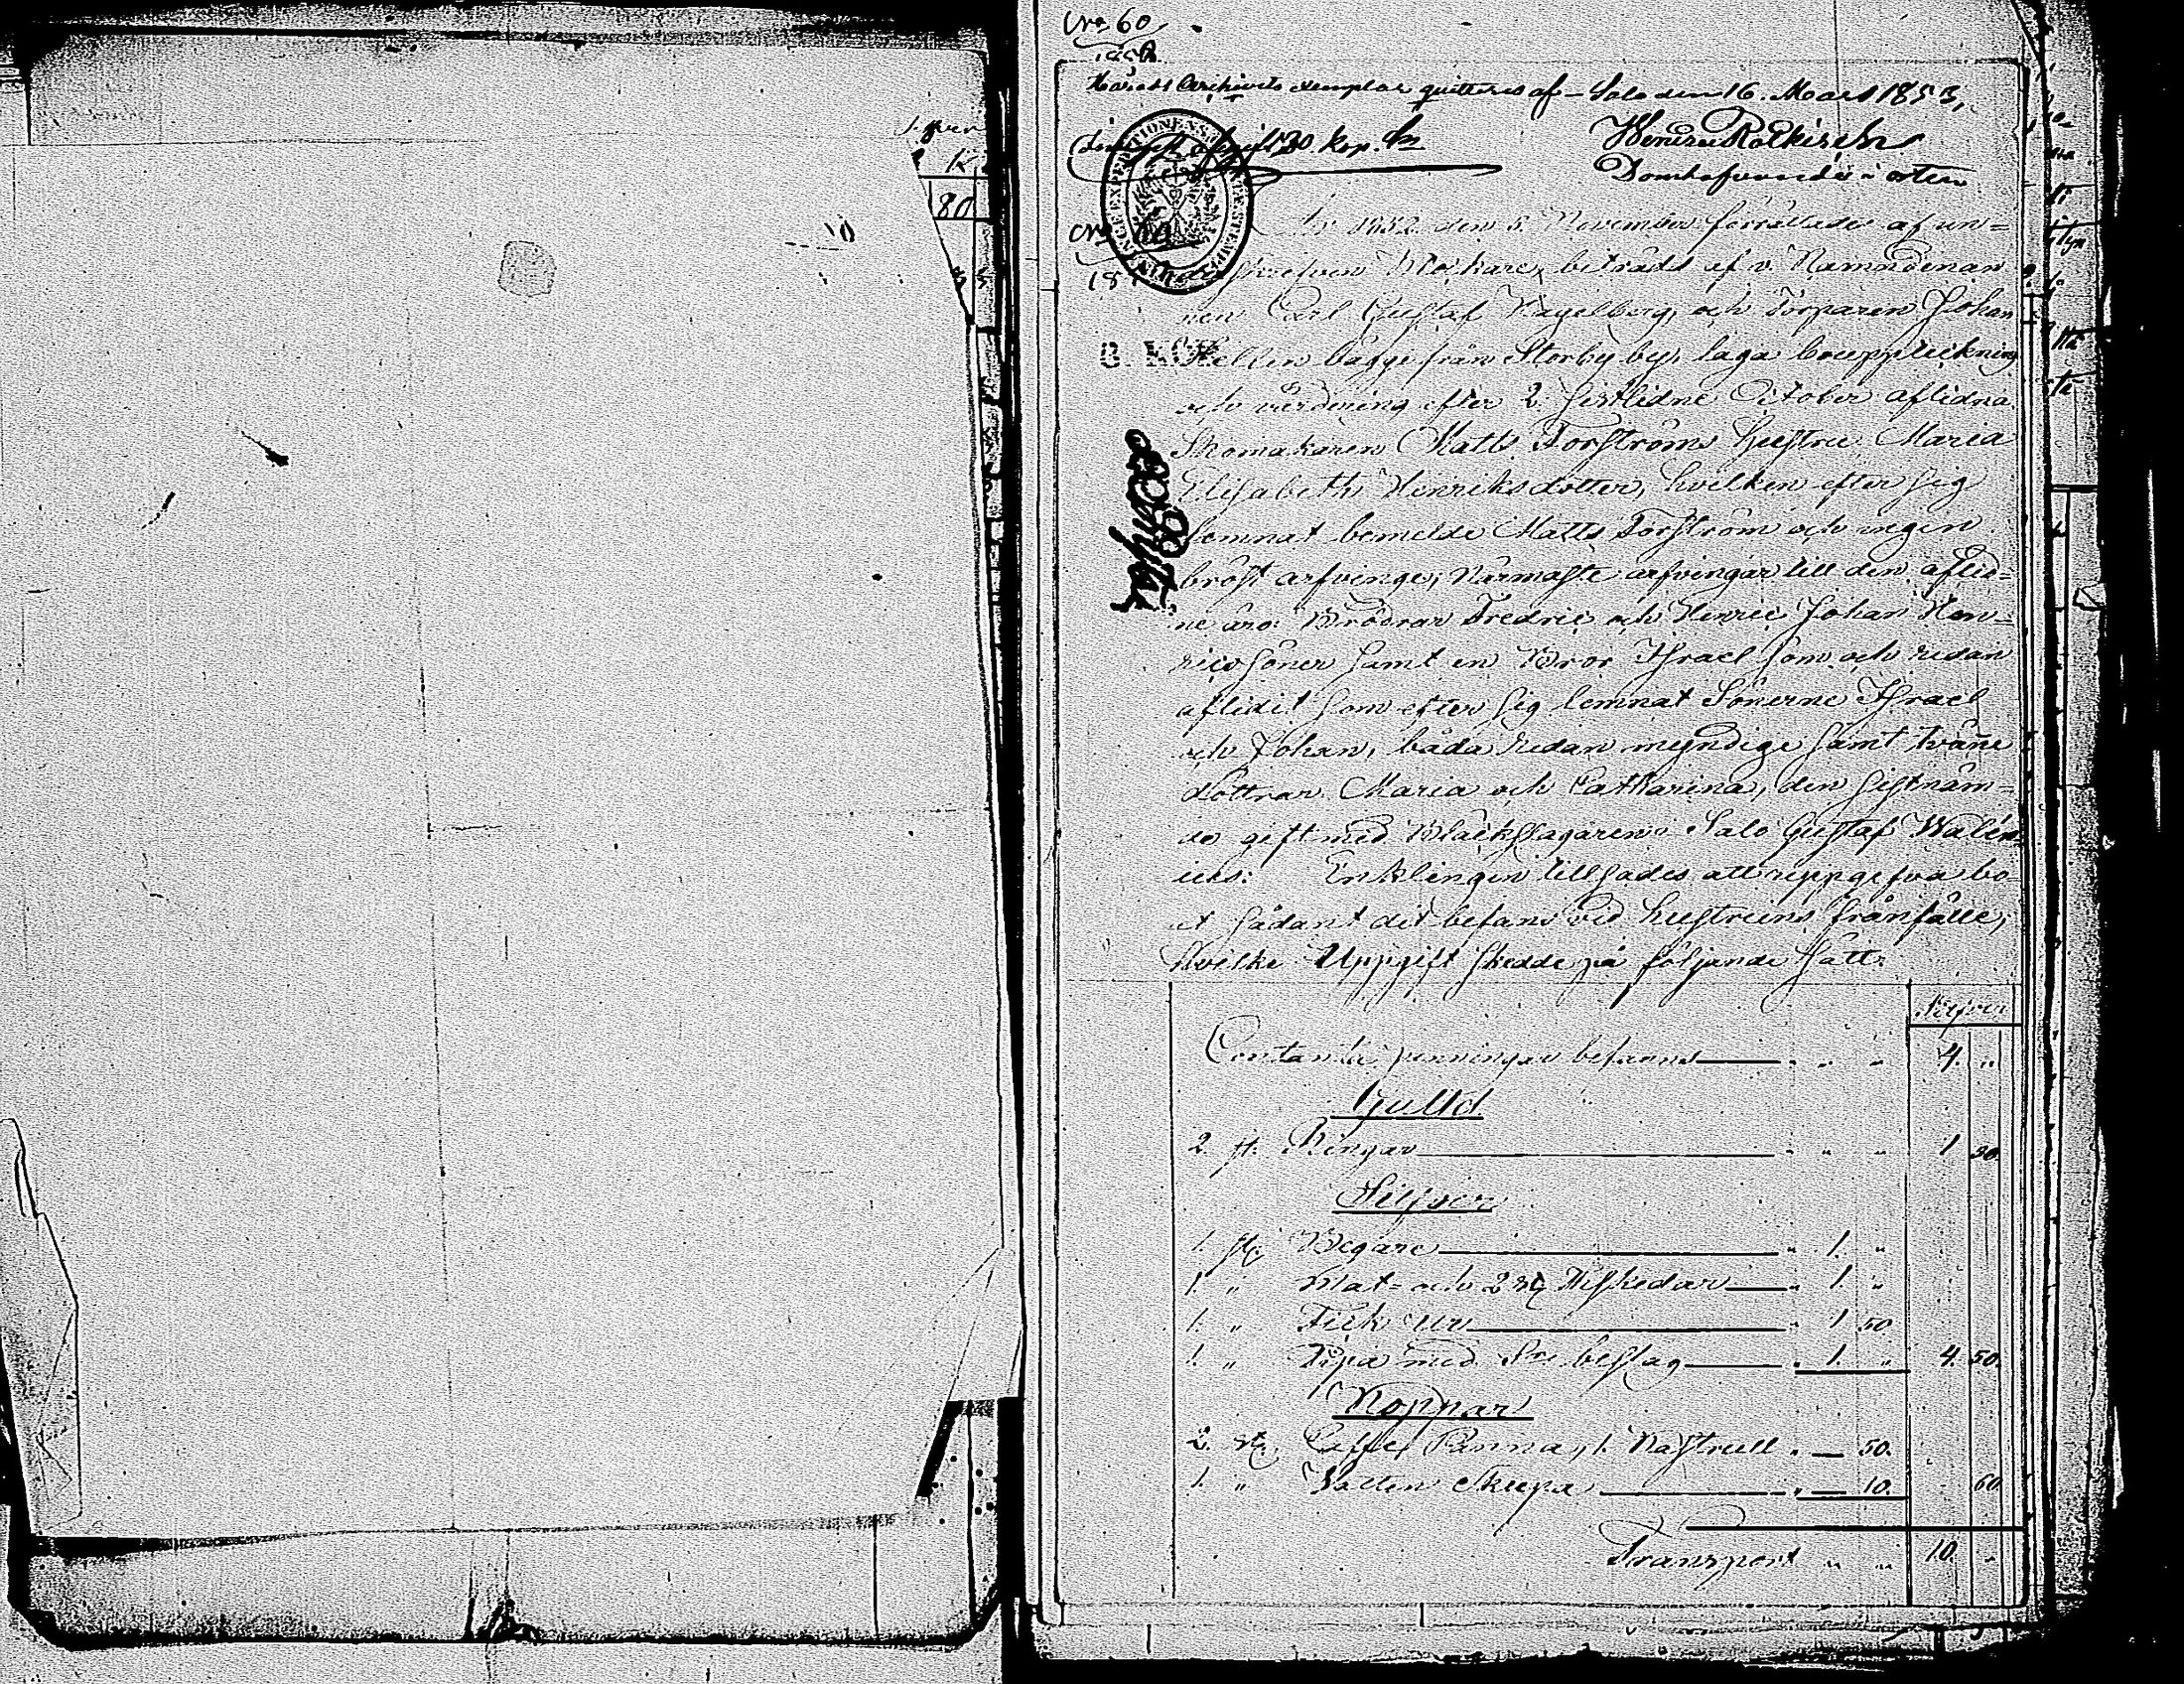 Silfver
K
80
No 60
1852
Härads Archivets exemplar quitteras af — Salo den 16. Mars 1853,
Henric Rotkirch
Domhafvande i orten
30. Kop.
År 1852 den 5 November förrättades af un=
beträdd af v. Nämndeman
nen Carl Gustaf Nagelberg och Torparen Johan
Sellin bägge från Storby by, laga bouppteckning
och värdering efter 2. sistlidne October aflidna
Skomakaren Matts Torströms hustru Maria
Elisabeth Henriksdotter, hvilken efter sig
lemnat bemelde Matts Torström och ingen
bröst arfvinge; Närmaste arfvingar till den aflid=
ne äro: Brödrar Fredric och Henric Johan Hen=
ricssöner samt en Bror Israel som och redan
aflidit som efter sig lemnat Sönerne Israel
och Johan, båda redan myndige samt tvänne
döttrar Maria och Catharina, den sistnäm=
da gift med Bläckslagaren i Salo Gustaf Walén
ius: Enklingen tillsades att uppgifva bo=
et sådant det befans vid hustruns frånfälle,
hvilke Uppgift skedde på följande sätt:
Silfver
Contanta penningar befanns 4. "
Gulld
2. st. Ringar 1 30.
Silfver
1. st. Bägare " 1. "
1. " Mat- och 2 st. Theskedar " 1. "
1. " Fick Ur " 1 50
1. " Pipa med Sr. beslag " 1. " 4. 50.
Koppar
2. st. Caffe Panna, 1. Kastrull " — 50.
1. " Watten Skopa " — 10. 60
Transport " " 10. "